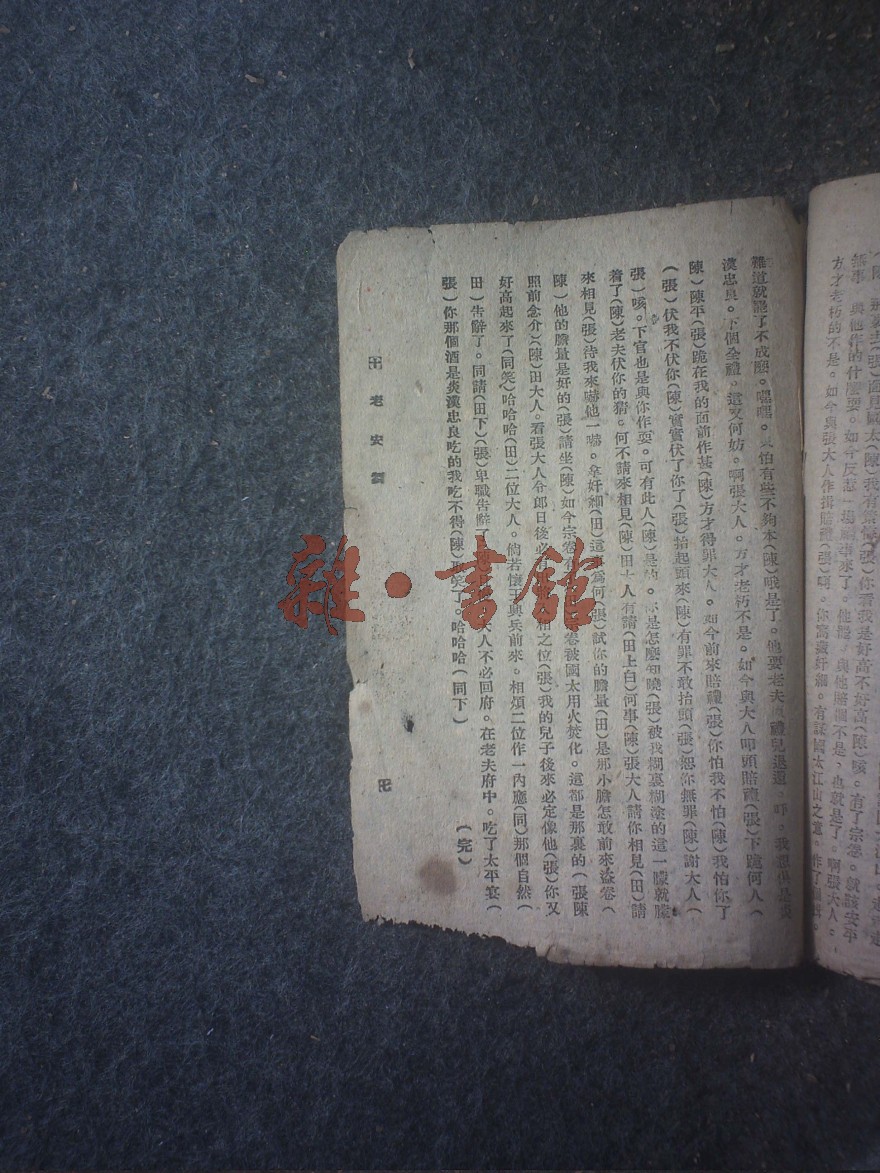 方才老朽的不是。如今與張大人作揖賠禮(張)呵。你窩藏奸細。有謀國太江山之意。作了
難道就罷了不成麽。嘿嘿。只怕有些不夠本(陳)哦是了。他要老夫禮兒退還。呼。我想也是炎
漢忠良。下個全禮。這又何妨。啊張大人。方才老朽不是。如今與大人叩頭賠禮(張)下跪何人(
陳)陳平(張)跪在我的面前作甚(陳)方才得罪大人。如今前來賠禮(張)你怕我不怕(陳)我怕你了
(張)伏我不伏你(陳)實實伏了你了(張)抬起頭來(陳)有罪不敢抬頭(張)恕你無罪(陳)謝大人(
張)咳。下官也是與你作耍。可有此人(陳)是的。你是怎麽知曉(張)被我糊裏糊塗的這一朦就朦
着了(陳)老夫伏你的猜。何不請來相見(陳)田大人有請(田上白)何事(陳)張大人請你相見(田)請
來相見(張)待我來嚇他一嚇。拿奸細(田)這是為何(張)試你的膽量(田)是那小膽怎敢前來盜卷(
陳)他的膽量是好的(張)請坐(陳)如今宗卷 卷被國太用火焚化。這都是那裏的(張陳
照前念介)(陳)田大人。看張大人令郎日後必 相之位(張)我的兒子後來必定像他(張)你又
好高起來了(同笑)哈哈哈(田)二位大人。倘若懷王興兵前來。相煩二位作一內應(同)那個自然(
田)告辭了。同請(田下)(張)卑職告辭了 人不必回府。在老夫府中。吃了太平宴(
張)你那個酒是炎漢忠良吃的我吃不得(陳)取笑了。哈哈哈(同下)
(完)
雜·書館